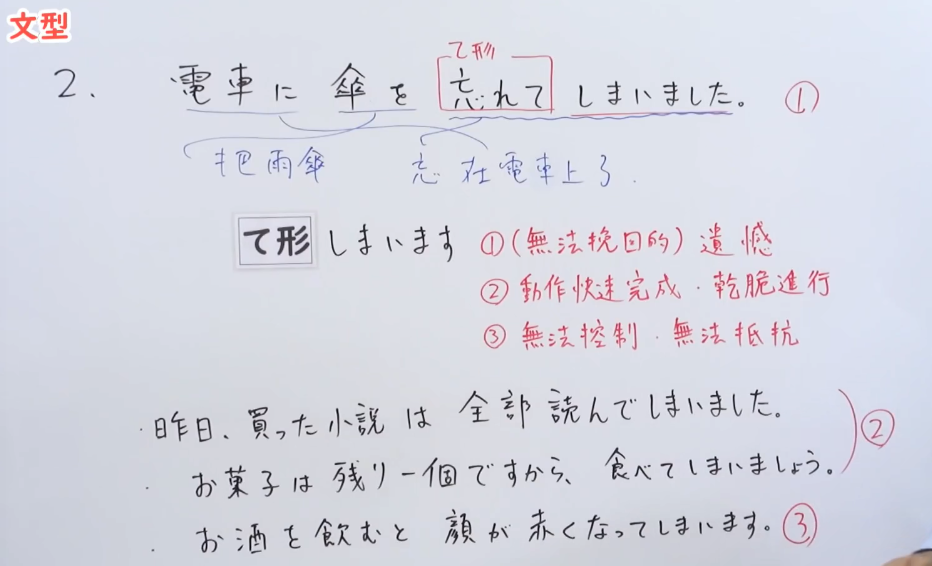 文型
て形
2. 電車に 傘を 忘れて しまいました。 ①
把雨傘 忘在電車上了.
て形 しまいます ①(無法挽回的)遺憾
②動作快速完成.乾脆進行
③無法控制.無法抵抗
・昨日、買った小説は 全部読んでしまいました。
・お菓子は残り一個ですから、食べてしまいましょう。 ②
・お酒を飲むと 顔が赤くなってしまいます。③